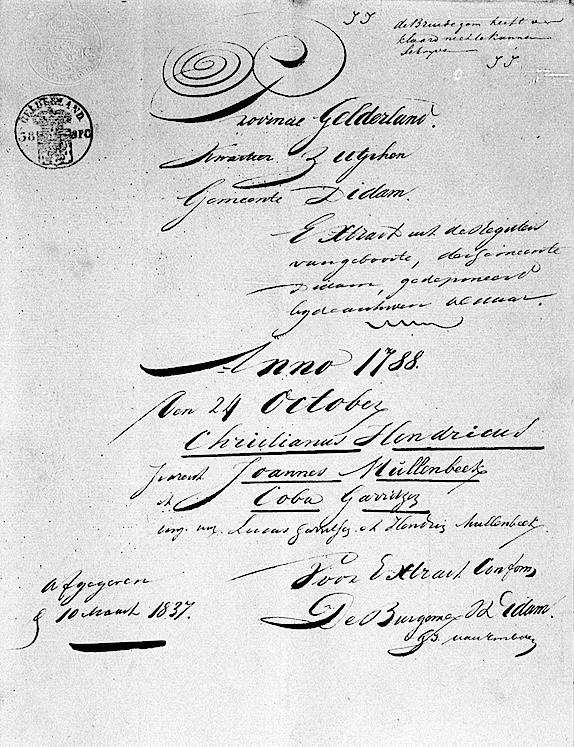 de Bruidegom heeft ver
klaard niet te kunnen
Schryven
GELDERLAND
38
Provincie Gelderland.
Kwartier Zutphen
Gemeente Didam.
Extract uit de Registers
van geboorte, der gemeente
Didam, gedeponeerd
by de archiven aldaar.
Anno 1788.
Den 24 October
Christianus Hendricus
parent Joannes Mullenbeek
et Coba Garritzen
Lucas Garritzen et Hendrik Mullenbeek
Afgegeven
10 Maart 1837.
Voor Extract Conform
De Burgemr Van Didam.
van